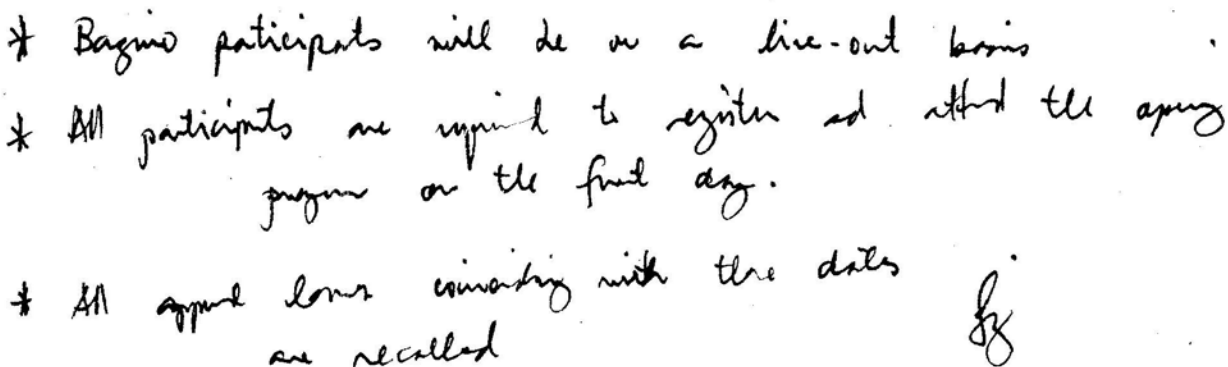 * Baguio participants will be on a live-out basis
* All participants are required to register and attend the opening
program on the first day.
* All approved leaves coinciding with these dates
are recalled